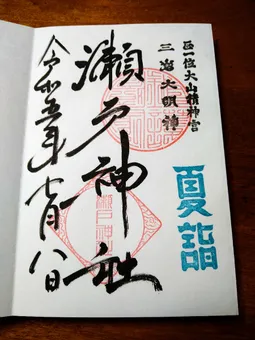 正一位大山積神宮
三島大明神
夏詣
瀬戸神社
令和五年七月八日